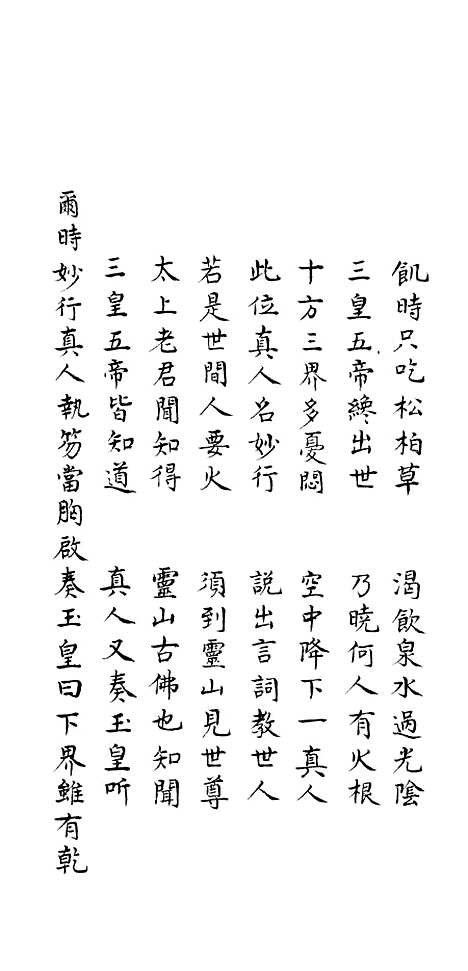 飢時只吃松柏草　渴飲泉水過光陰
三皇五帝纔出世　乃曉何人有火根
十方三界多憂悶　空中降下一真人
此位真人名妙行　說出言詞教世人
若是世間人要火　須到靈山見世尊
太上老君聞知得　靈山古佛也知聞
三皇五帝皆知道　真人又奏玉皇听
爾時妙行真人執笏當胸啟奏玉皇曰下界雖有乾